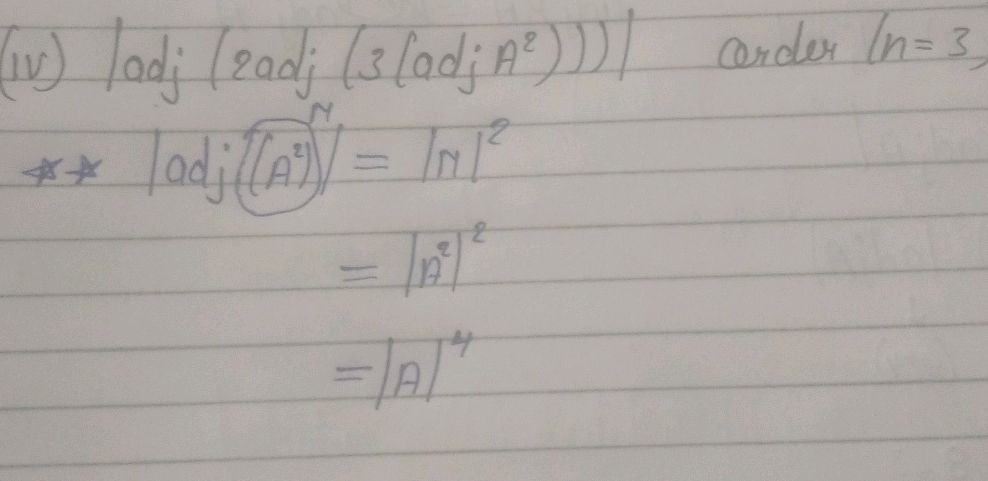 (iv) |adj (2adj (3(adj A²)))| order (n=3,
N
** |adj((A²))| = |N|²
= |A²|²
= |A|⁴